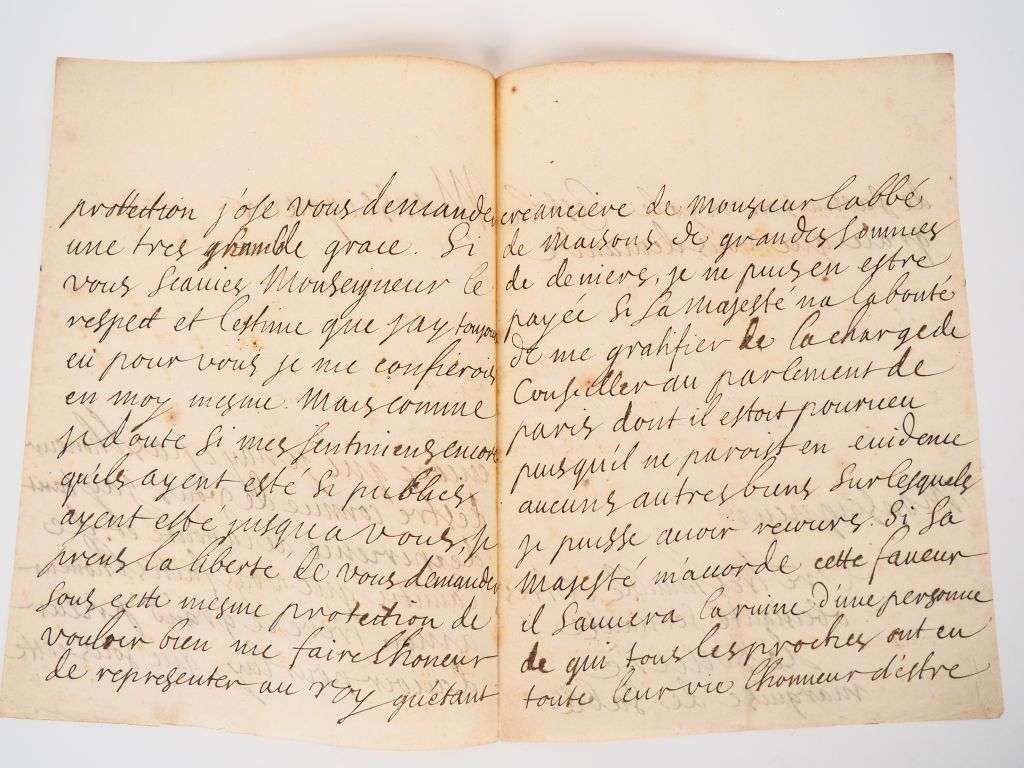 protection j'ose vous demander
une tres humble grace. Si
vous scauies Monseigneur le
respect et lestime que jay toujours
eu pour vous je me confierois
en moy mesme. Mais comme
je doute si mes sentimens encore
quils ayent esté si publics
ayent esté jusqua vous, je
prens la liberte de vous demander
sous cette mesme protection de
vouloir bien me faire lhoneur
de representer au roy questant
creanciere de monsieur labbé
de maisons de grandes sommes
de deniers, je ne puis en estre
payée si sa majesté na la bonté
de me gratifier de la charge de
Conseiller au parlement de
paris dont il estoit pourueu
puisqu'il ne paroist en euidence
aucuns autres biens sur lesquels
je puisse auoir recours. Si sa
majesté macorde cette faueur
il sauuera la ruine d'une personne
de qui tous les proches ont eu
toute leur vie lhonneur d'estre